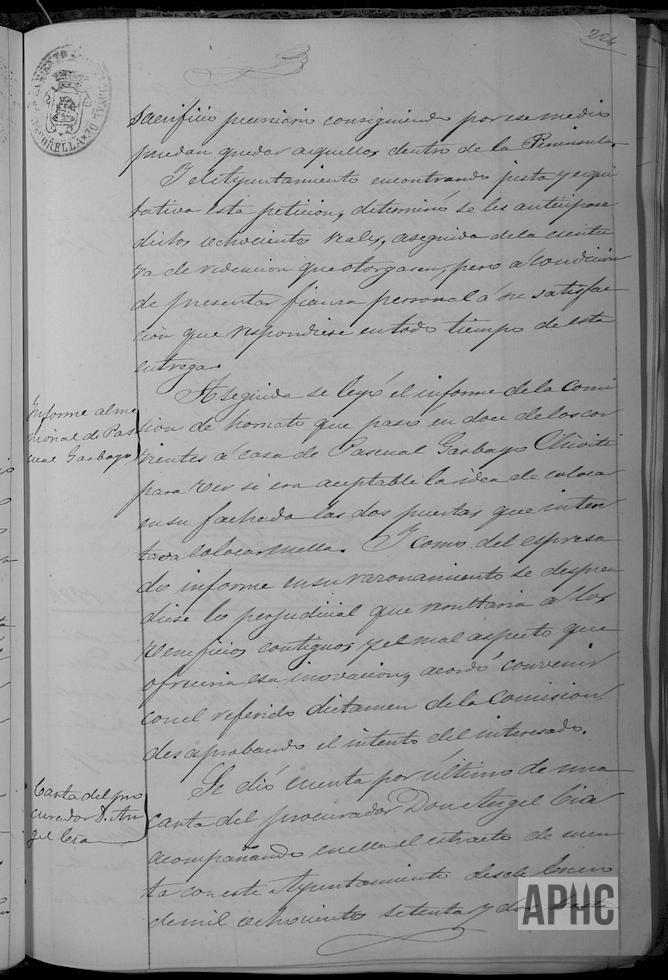 224
sacrificio pecuniario consiguiendo por ese medio
puedan quedar aquellos dentro de la Peninsula.
I el Ayuntamiento encontrando justa y equi
tativa esta peticion, determinó se les anticipase
dichos ochocientos reales, aseguida de la escritu
ra de redencion que otorgasen, pero a condicion
de presentar fianza personal á su satisfac
cion que respondiese en todo tiempo de esta
entrega.
Informe al me
morial de Pas
cual Garbayo
A seguida se leyó el informe de la Comi
sion de hornato que pasó en doce de los cor
rientes á casa de Pascual Garbayo Chivite
para ver si era aceptable la idea de colocar
en su fachada las dos puertas que inten
tava colocar en ella. I como del espresa
do informe en su razonamiento se despren
diese lo perjudicial que resultaria a los
beneficios contiguos y el mal aspecto que
ofreceria esa inovacion, acordó convenir
con el referido dictamen de la Comision,
desaprobando el intento del interesado.
Carta del pro
curador D. An
gel Cia
Se dió cuenta por último de una
carta del procurador Don Angel Cia
acompañando en ella el estracto de cuen
ta con este Ayuntamiento desde Enero
de mil ochocientos setenta y dos hasta
APHC